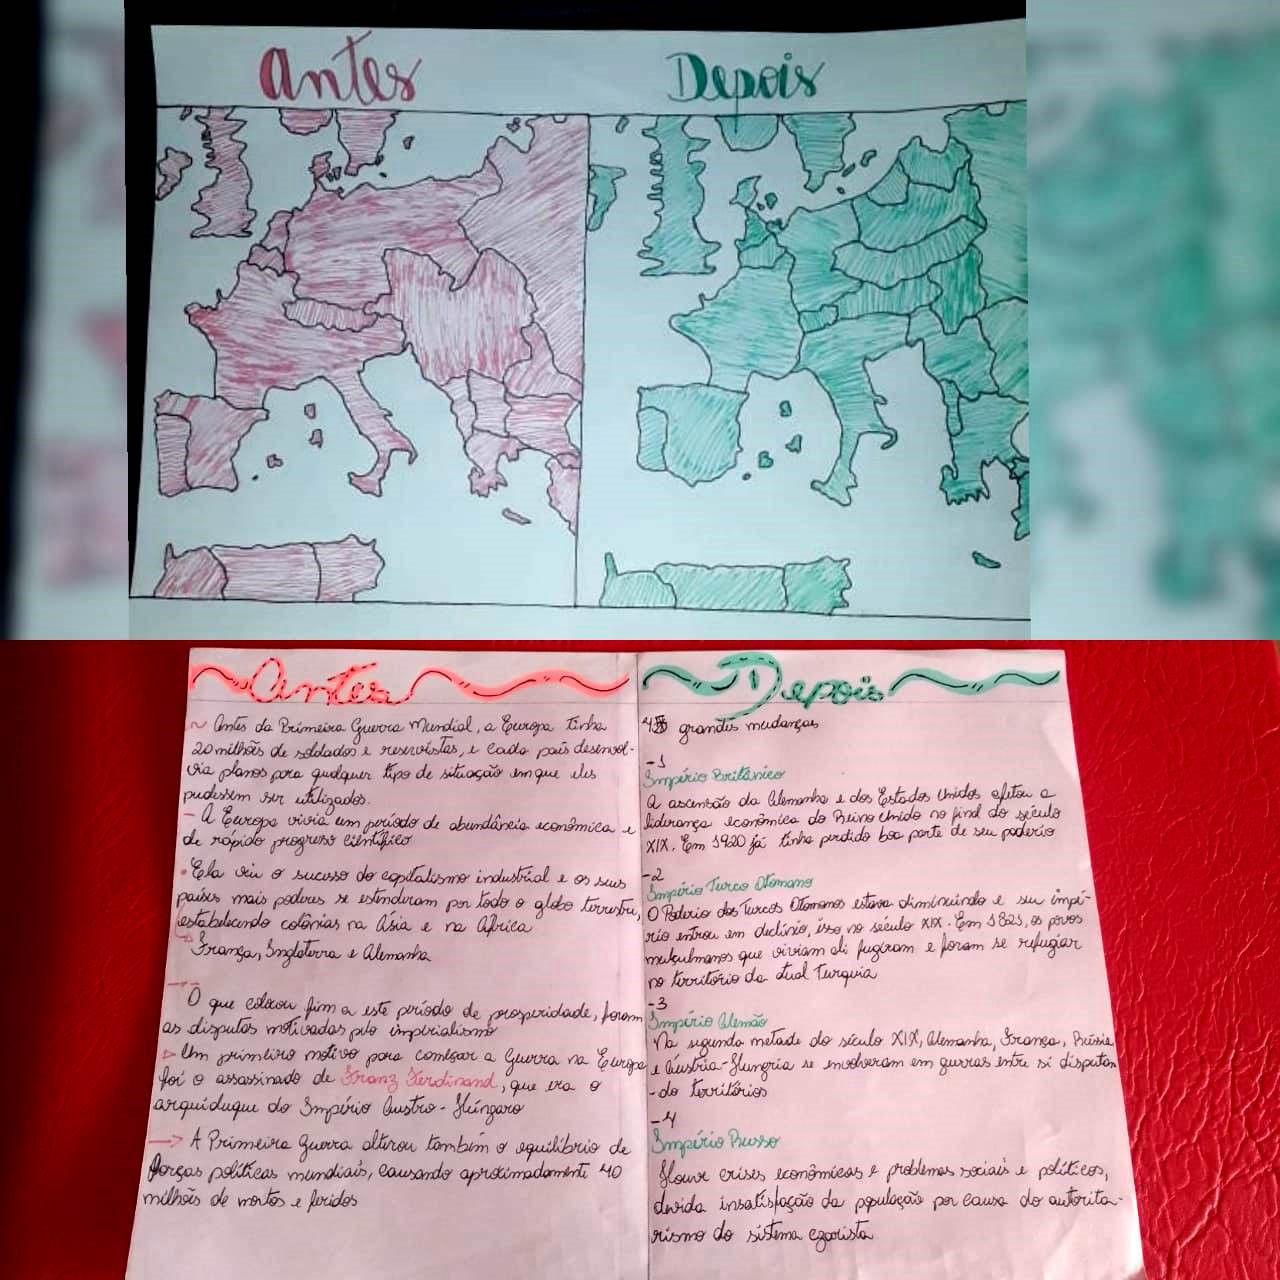 Antes
Depois
Antes
~ Antes da Primeira Guerra Mundial, a Europa tinha
20 milhões de soldados e reservistas, e cada país desenvol-
via planos para qualquer tipo de situação em que eles
pudessem ser utilizados.
- A Europa vivia um período de abundância econômica e
de rápido progresso científico
• Ela viu o sucesso do capitalismo industrial e os seus
países mais poderes se estenderam por todo o globo terrestre,
estabelecendo colônias na Ásia e na África
França, Inglaterra e Alemanha
O que colocou fim a este período de prosperidade, foram
as disputas motivadas pelo imperialismo
▷ Um primeiro motivo para começar a Guerra na Europa
foi o assassinado de Franz Ferdinand, que era o
arquiduque do Império Austro-Húngaro
→ A Primeira Guerra alterou também o equilíbrio de
forças políticas mundiais, causando aproximadamente 40
milhões de mortos e feridos
Depois
4 grandes mudanças
-1
Império Britânico
A ascensão da Alemanha e dos Estados Unidos afetou a
liderança econômica do Reino Unido no final do século
XIX. Em 1920 já tinha perdido boa parte de seu poderio
-2
Império Turco Otomano
O Poderio dos Turcos Otomanos estava diminuindo e seu impé-
rio entrou em declínio, isso no século XIX. Em 1821, os povos
mulçumanos que viviam ali fugiram e foram se refugiar
no território da atual Turquia
-3
Império Alemão
Na segunda metade do século XIX, Alemanha, França, Rússia
e Áustria-Hungria se envolveram em guerras entre si disputan
-do territórios
-4
Império Russo
Houve crises econômicas e problemas sociais e políticos,
devida insatisfação da população por causa do autorita-
rismo do sistema czarista